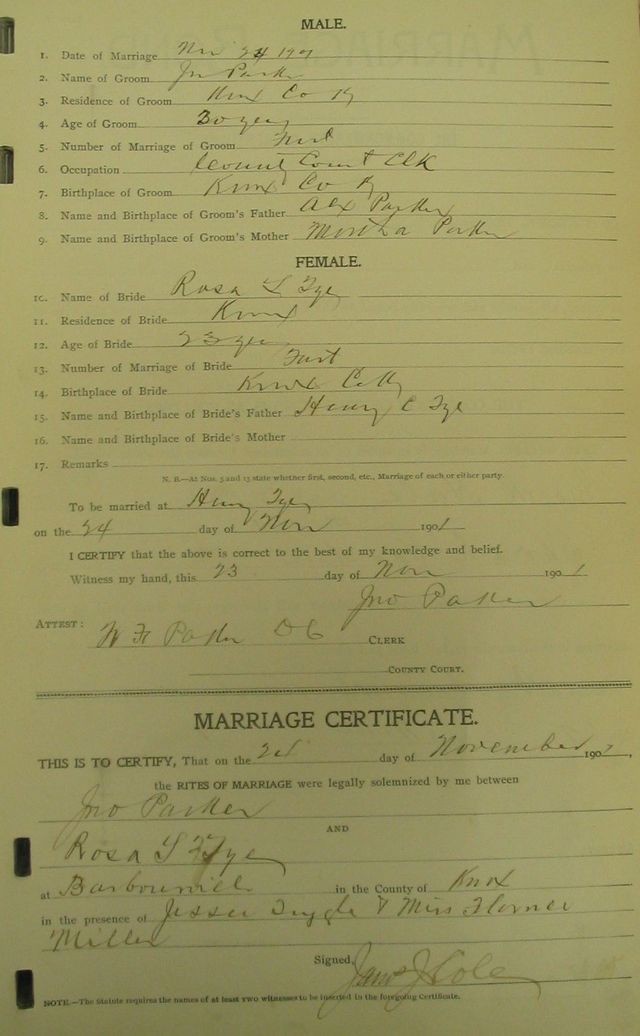 MALE.
1. Date of Marriage Nov 24 1901
2. Name of Groom Jno Parker
3. Residence of Groom Knox Co Ky
4. Age of Groom 30 years
5. Number of Marriage of Groom First
6. Occupation County Court Clk
7. Birthplace of Groom Knox Co Ky
8. Name and Birthplace of Groom's Father Alex Parker
9. Name and Birthplace of Groom's Mother Martha Parker
FEMALE.
10. Name of Bride Rosa L Tye
11. Residence of Bride Knox
12. Age of Bride 23 years
13. Number of Marriage of Bride First
14. Birthplace of Bride Knox Co Ky
15. Name and Birthplace of Bride's Father Henry C Tye
16. Name and Birthplace of Bride's Mother
17. Remarks
N. B.—At Nos. 5 and 13 state whether first, second, etc., Marriage of each or either party.
To be married at Henry Tyes
on the 24 day of Nov 1901
I CERTIFY that the above is correct to the best of my knowledge and belief.
Witness my hand, this 23 day of Nov 1901
Jno Parker
ATTEST: Parker D C CLERK
COUNTY COURT.
MARRIAGE CERTIFICATE.
THIS IS TO CERTIFY, That on the 24 day of November 1901,
the RITES OF MARRIAGE were legally solemnized by me between
Jno Parker
AND
Rosa L Tye
at Barbourville in the County of Knox
in the presence of Jesse Tuggle & Miss Florence
Miller
Signed, J Cole
NOTE.—The Statute requires the names of at least two witnesses to be inserted in the foregoing Certificate.